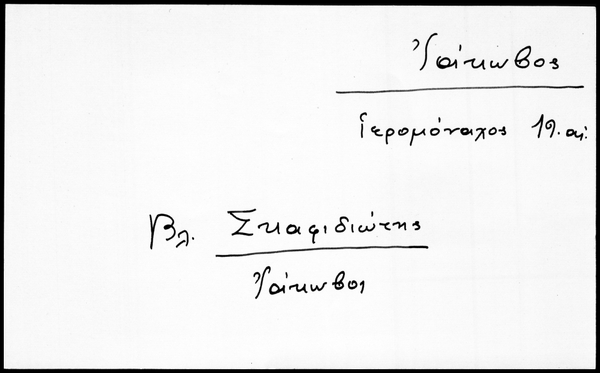 Ἰάκωβος
ἱερομόναχος 19. αἰ.
Βλ. Σκαφιδιώτης
Ἰάκωβος